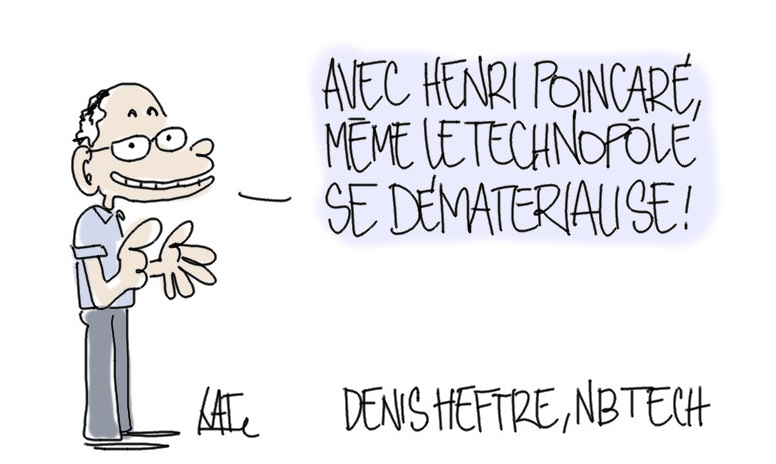 AVEC HENRI POINCARÉ,
MÊME LE TECHNOPÔLE
SE DÉMATERIALISE !
DENIS HEFTRE, NBTECH